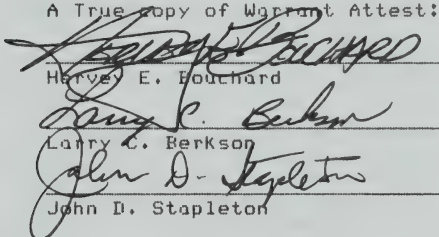 A True copy of Warrant Attest:
Harvey E. Bouchard
Harvey E. Bouchard
Larry C. Berkson
Larry C. Berkson
John D. Stapleton
John D. Stapleton